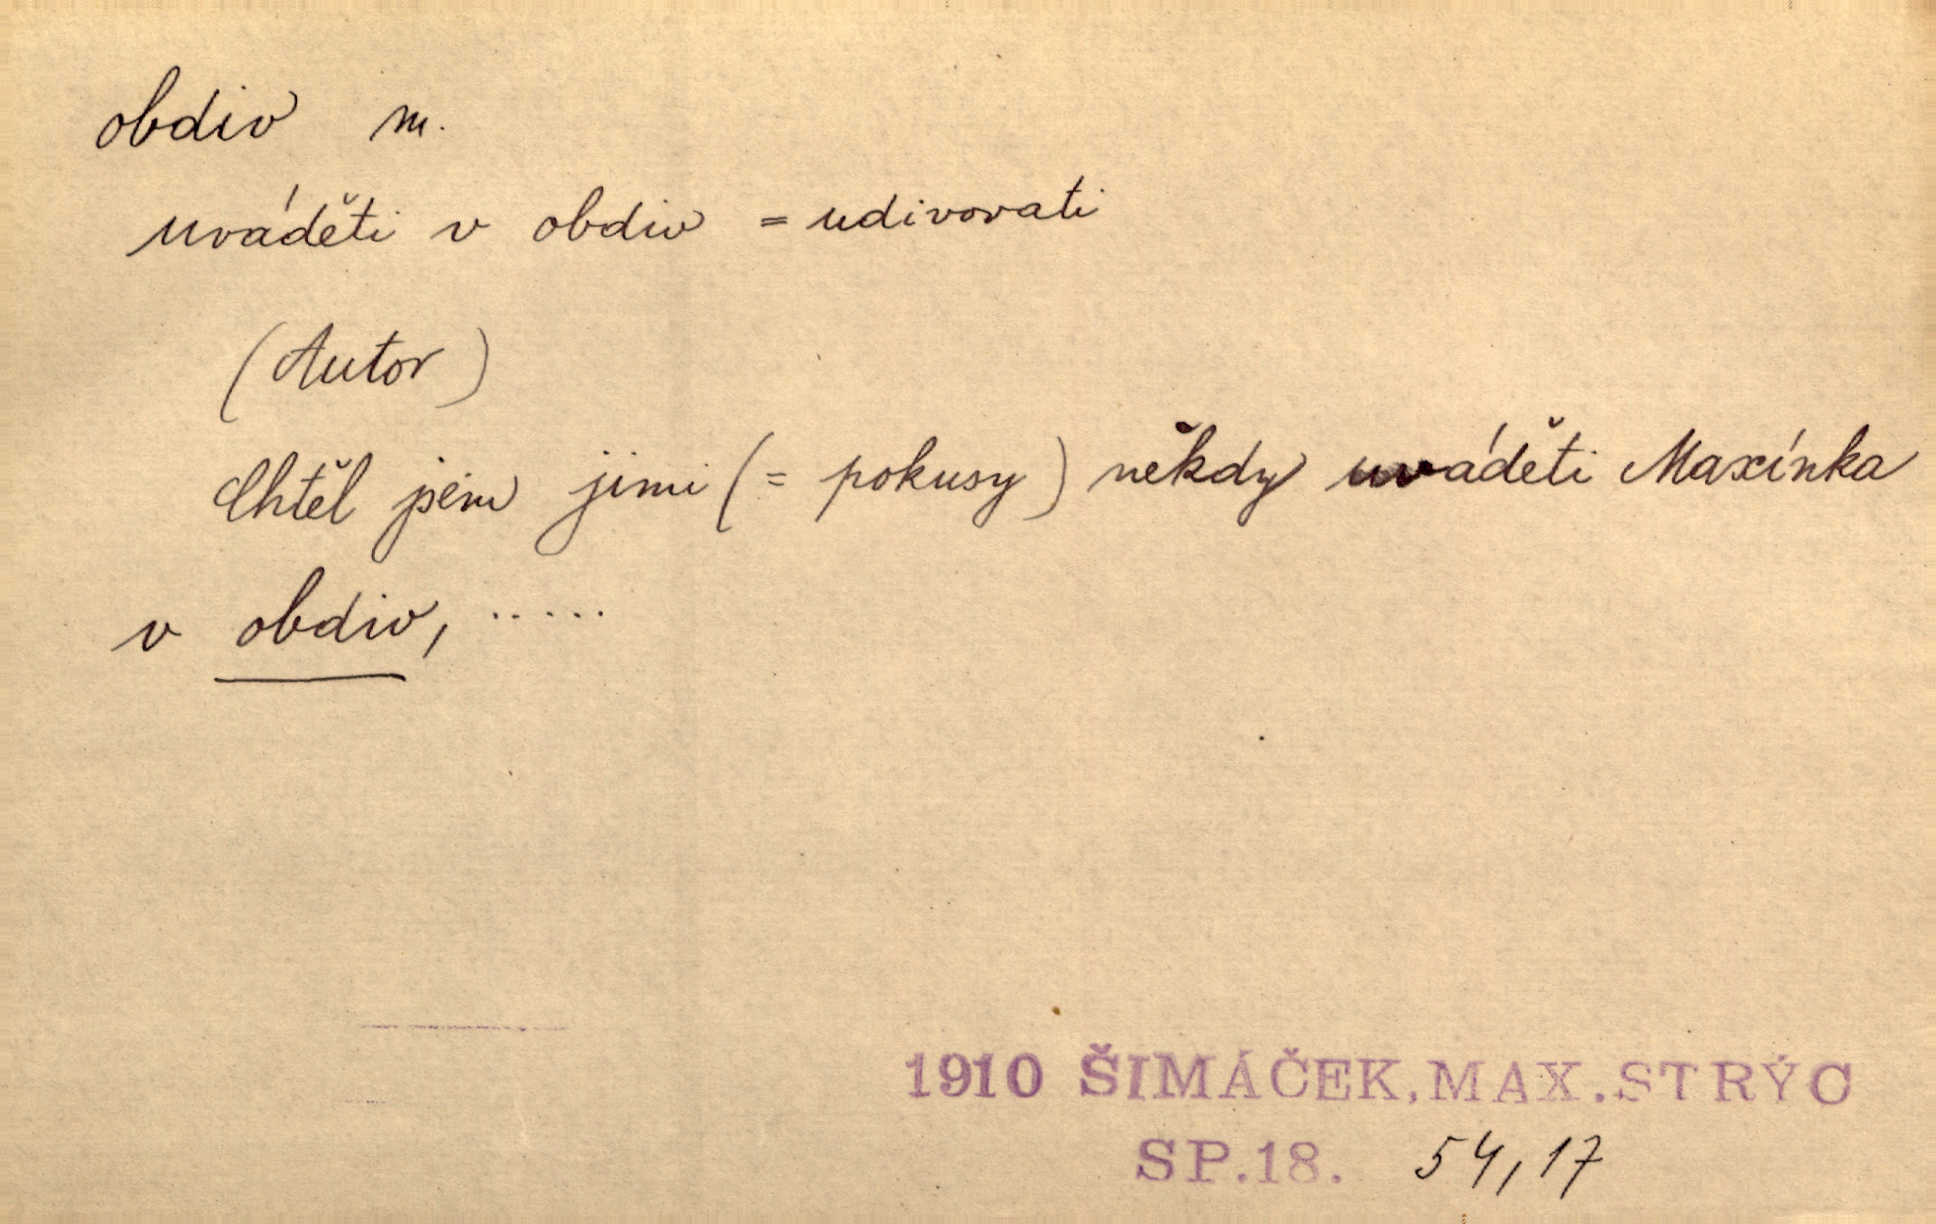 obdiv m.
uváděti v obdiv = udivovati
(Autor)
Chtěl jsem jimi (= pokusy) někdy uváděti Maxínka
v obdiv, .....
1910 ŠIMÁČEK, MAX. STRÝC
SP.18. 54,17